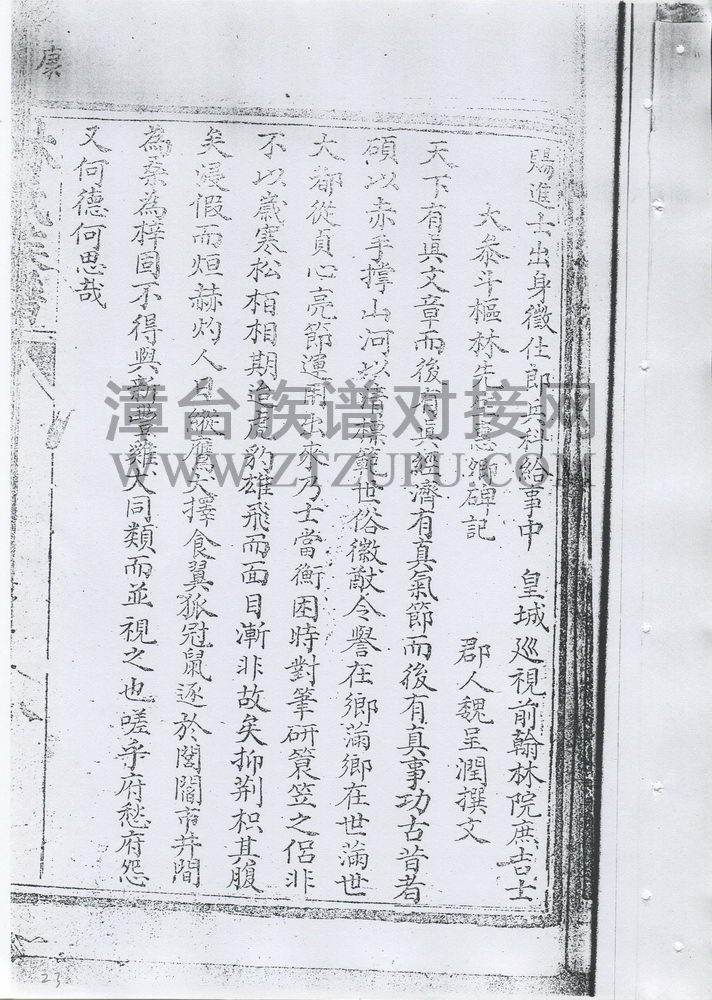 賜進士出身徵仕郎兵科給事中 皇城 廵視前翰林院庶吉士
大叅斗樞林先生惠鄉碑記
郡人魏呈潤撰文
天下有眞文章而後有眞經濟有真氣節而後有真事功古昔者
碩以赤手撐山河以標範世俗徽猷令譽在鄉滿鄉在世滿世
大都從貞心亮節運用出來乃士當衡困時對筆研簑笠之侣非
不以歲寒松栢相期迨虎豹雄飛而面目漸非故矣抑荆枳其腹
矣浸假而烜赫灼人目縱鷹犬擇食翼狐冠鼠逐於閭閻市井間
為桑為梓固不得與新豐雞犬同類而並視之也嗟乎府愁府怨
又何德何思哉
林氏族譜
康
漳台族谱对接网
WWW.ZTZUPU.COM
23